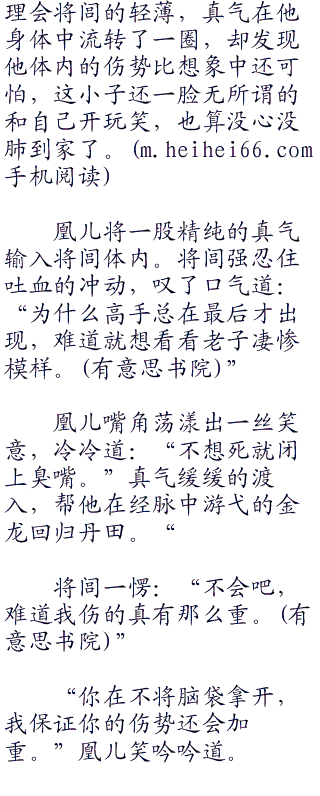 理会将闾的轻薄，真气在他
身体中流转了一圈，却发现
他体内的伤势比想象中还可
怕，这小子还一脸无所谓的
和自己开玩笑，也算没心没
肺到家了。(m.heihei66.com
手机阅读)
凰儿将一股精纯的真气
输入将闾体内。将闾强忍住
吐血的冲动，叹了口气道：
“为什么高手总在最后才出
现，难道就想看看老子凄惨
模样。(有意思书院)”
凰儿嘴角荡漾出一丝笑
意，冷冷道：“不想死就闭
上臭嘴。”真气缓缓的渡
入，帮他在经脉中游弋的金
龙回归丹田。“
将闾一愣：“不会吧，
难道我伤的真有那么重。(有
意思书院)”
“你在不将脑袋拿开，
我保证你的伤势还会加
重。”凰儿笑吟吟道。